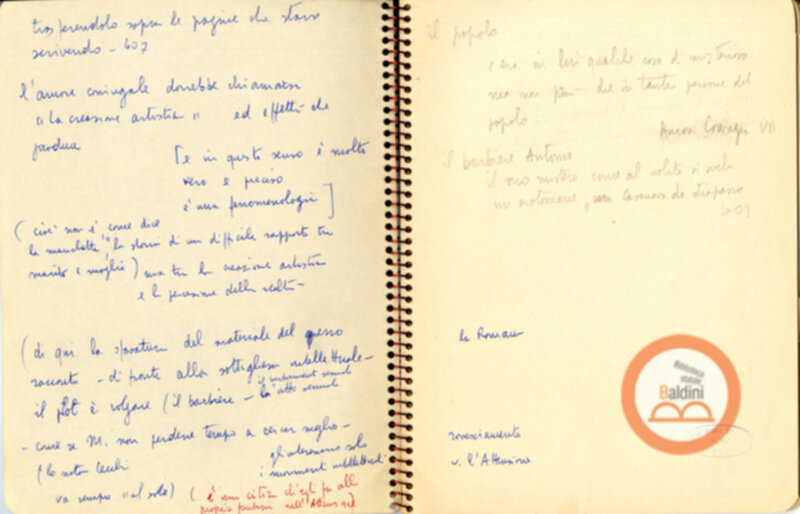 trasferendolo sopra le pagine che stava
scrivendo - 407
l'amore coniugale dovrebbe chiamarsi
"la creazione artistica" ed effetti che
produce
[e in questo senso è molto
vero e preciso
è una fenomenologia]
(cioè non è come dice
la manchetta "la storia di un difficile rapporto tra
marito e moglie) ma tra la creazione artistica
e la percezione della realtà -
(di qui la sfasatura del materiale del
racconto - di fronte alla sottigliezza intellettuale -
il plot è volgare (il barbiere - l'atto sessuale
- come se M. non perdesse tempo a cercar meglio -
gli interessano solo
(lo nota Cecchi i movimenti intellettuali
va sempre "al sodo) (è una critica ch'egli fa alla
propria
il popolo
c'era in lui qualche cosa di misterioso
ma non più che in tante persone del
popolo
Amore Coniugale VII
il barbiere Antonio
il suo mistero come al solito si svela
un erotomane, un Casanova da strapazzo
401
la Romana
rovesciamento
v. l'Attenzione
Biblioteca
statale
Baldini